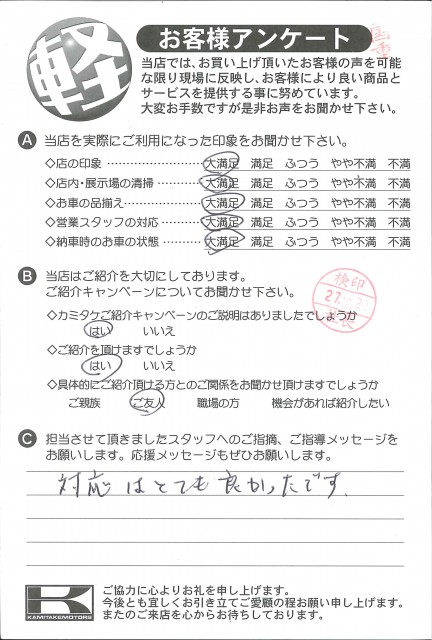 軽
お客様アンケート
当店では、お買い上げ頂いたお客様の声を可能
な限り現場に反映し、お客様により良い商品と
サービスを提供する事に努めています。
大変お手数ですが是非お声をお聞かせ下さい。
A 当店を実際にご利用になった印象をお聞かせ下さい。
◇店の印象 ………………… 大満足 満足 ふつう やや不満 不満
◇店内・展示場の清掃 ……… 大満足 満足 ふつう やや不満 不満
◇お車の品揃え …………… 大満足 満足 ふつう やや不満 不満
◇営業スタッフの対応 ……… 大満足 満足 ふつう やや不満 不満
◇納車時のお車の状態 ……… 大満足 満足 ふつう やや不満 不満
B 当店はご紹介を大切にしてあります。
ご紹介キャンペーンについてお聞かせ下さい。
検印
27
◇カミタケご紹介キャンペーンのご説明はありましたでしょうか
はい いいえ
◇ご紹介を頂けますでしょうか
はい いいえ
◇具体的にご紹介頂ける方とのご関係をお聞かせ頂けますでしょうか
ご親族 ご友人 職場の方 機会があれば紹介したい
C 担当させて頂きましたスタッフへのご指摘、ご指導メッセージを
お願いします。応援メッセージもぜひお願いします。
対応はとても良かったです。
K
KAMITAKEMOTORS
ご協力に心よりお礼を申し上げます。
今後とも宜しくお引き立てご愛顧の程お願い申し上げます。
またのご来店を心からお待ちしております。